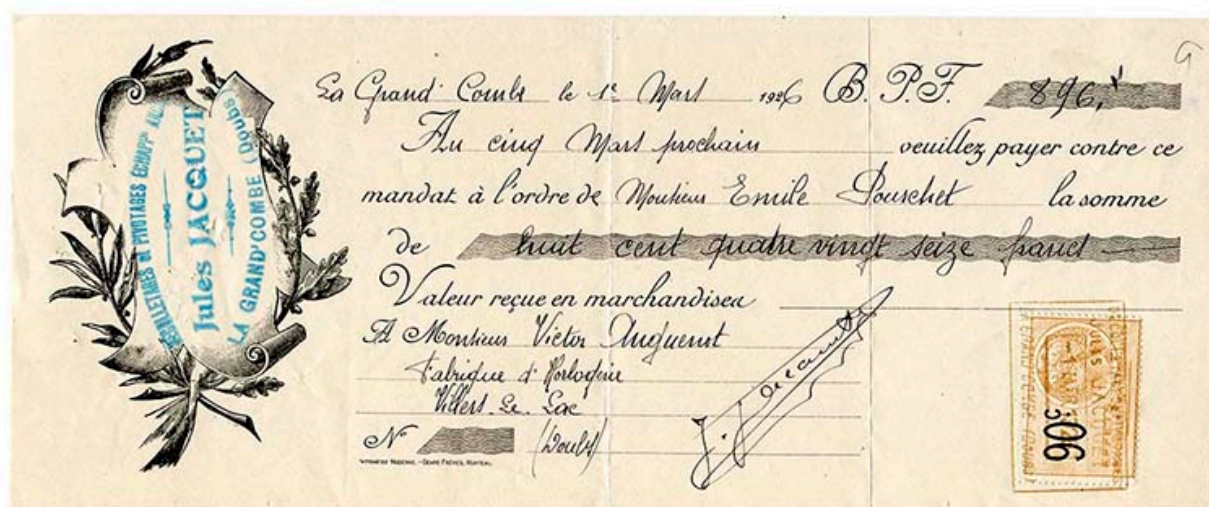 PIVOTAGES ÉCHAPP
Jules JACQUET
LA GRAND'COMBE (Doubs)
La Grand' Combe le 1er Mars 1926 B. P. F. 896,
Au cinq Mars prochain veuillez payer contre ce
mandat à l'ordre de Monsieur Emile Pouschet la somme
de huit cent quatre vingt seize francs
Valeur reçue en marchandises
A Monsieur Victor Anguenot
Fabrique d'Horlogerie
Villers-Le-Lac
No (Doubs)
J. Jacquet
906